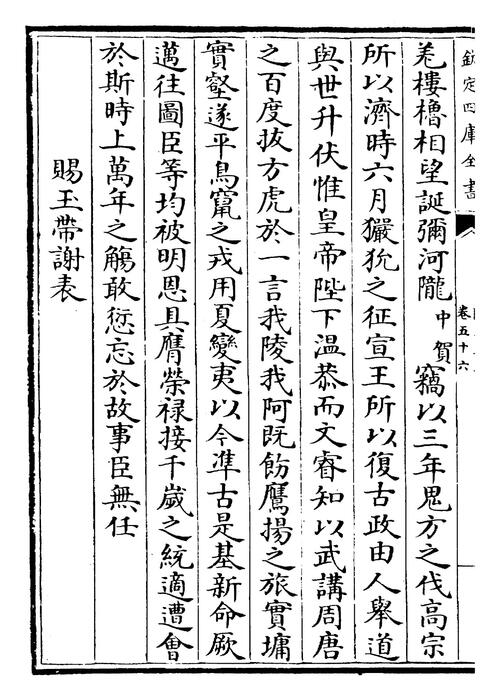 欽定四庫全書
卷五十六
羌樓櫓相望誕彌河隴中賀竊以三年鬼方之伐高宗
所以濟時六月玁狁之征宣王所以復古政由人舉道
與世升伏惟皇帝陛下溫恭而文睿知以武講周唐
之百度拔方虎於一言我陵我阿既飭鷹揚之旅實墉
實壑遂平鳥竄之戎用夏變夷以今準古是基新命厥
邁往圖臣等均被明恩具膺榮禄接千歲之統適遭會
於斯時上萬年之觴敢愆忘於故事臣無任
賜玉帶謝表